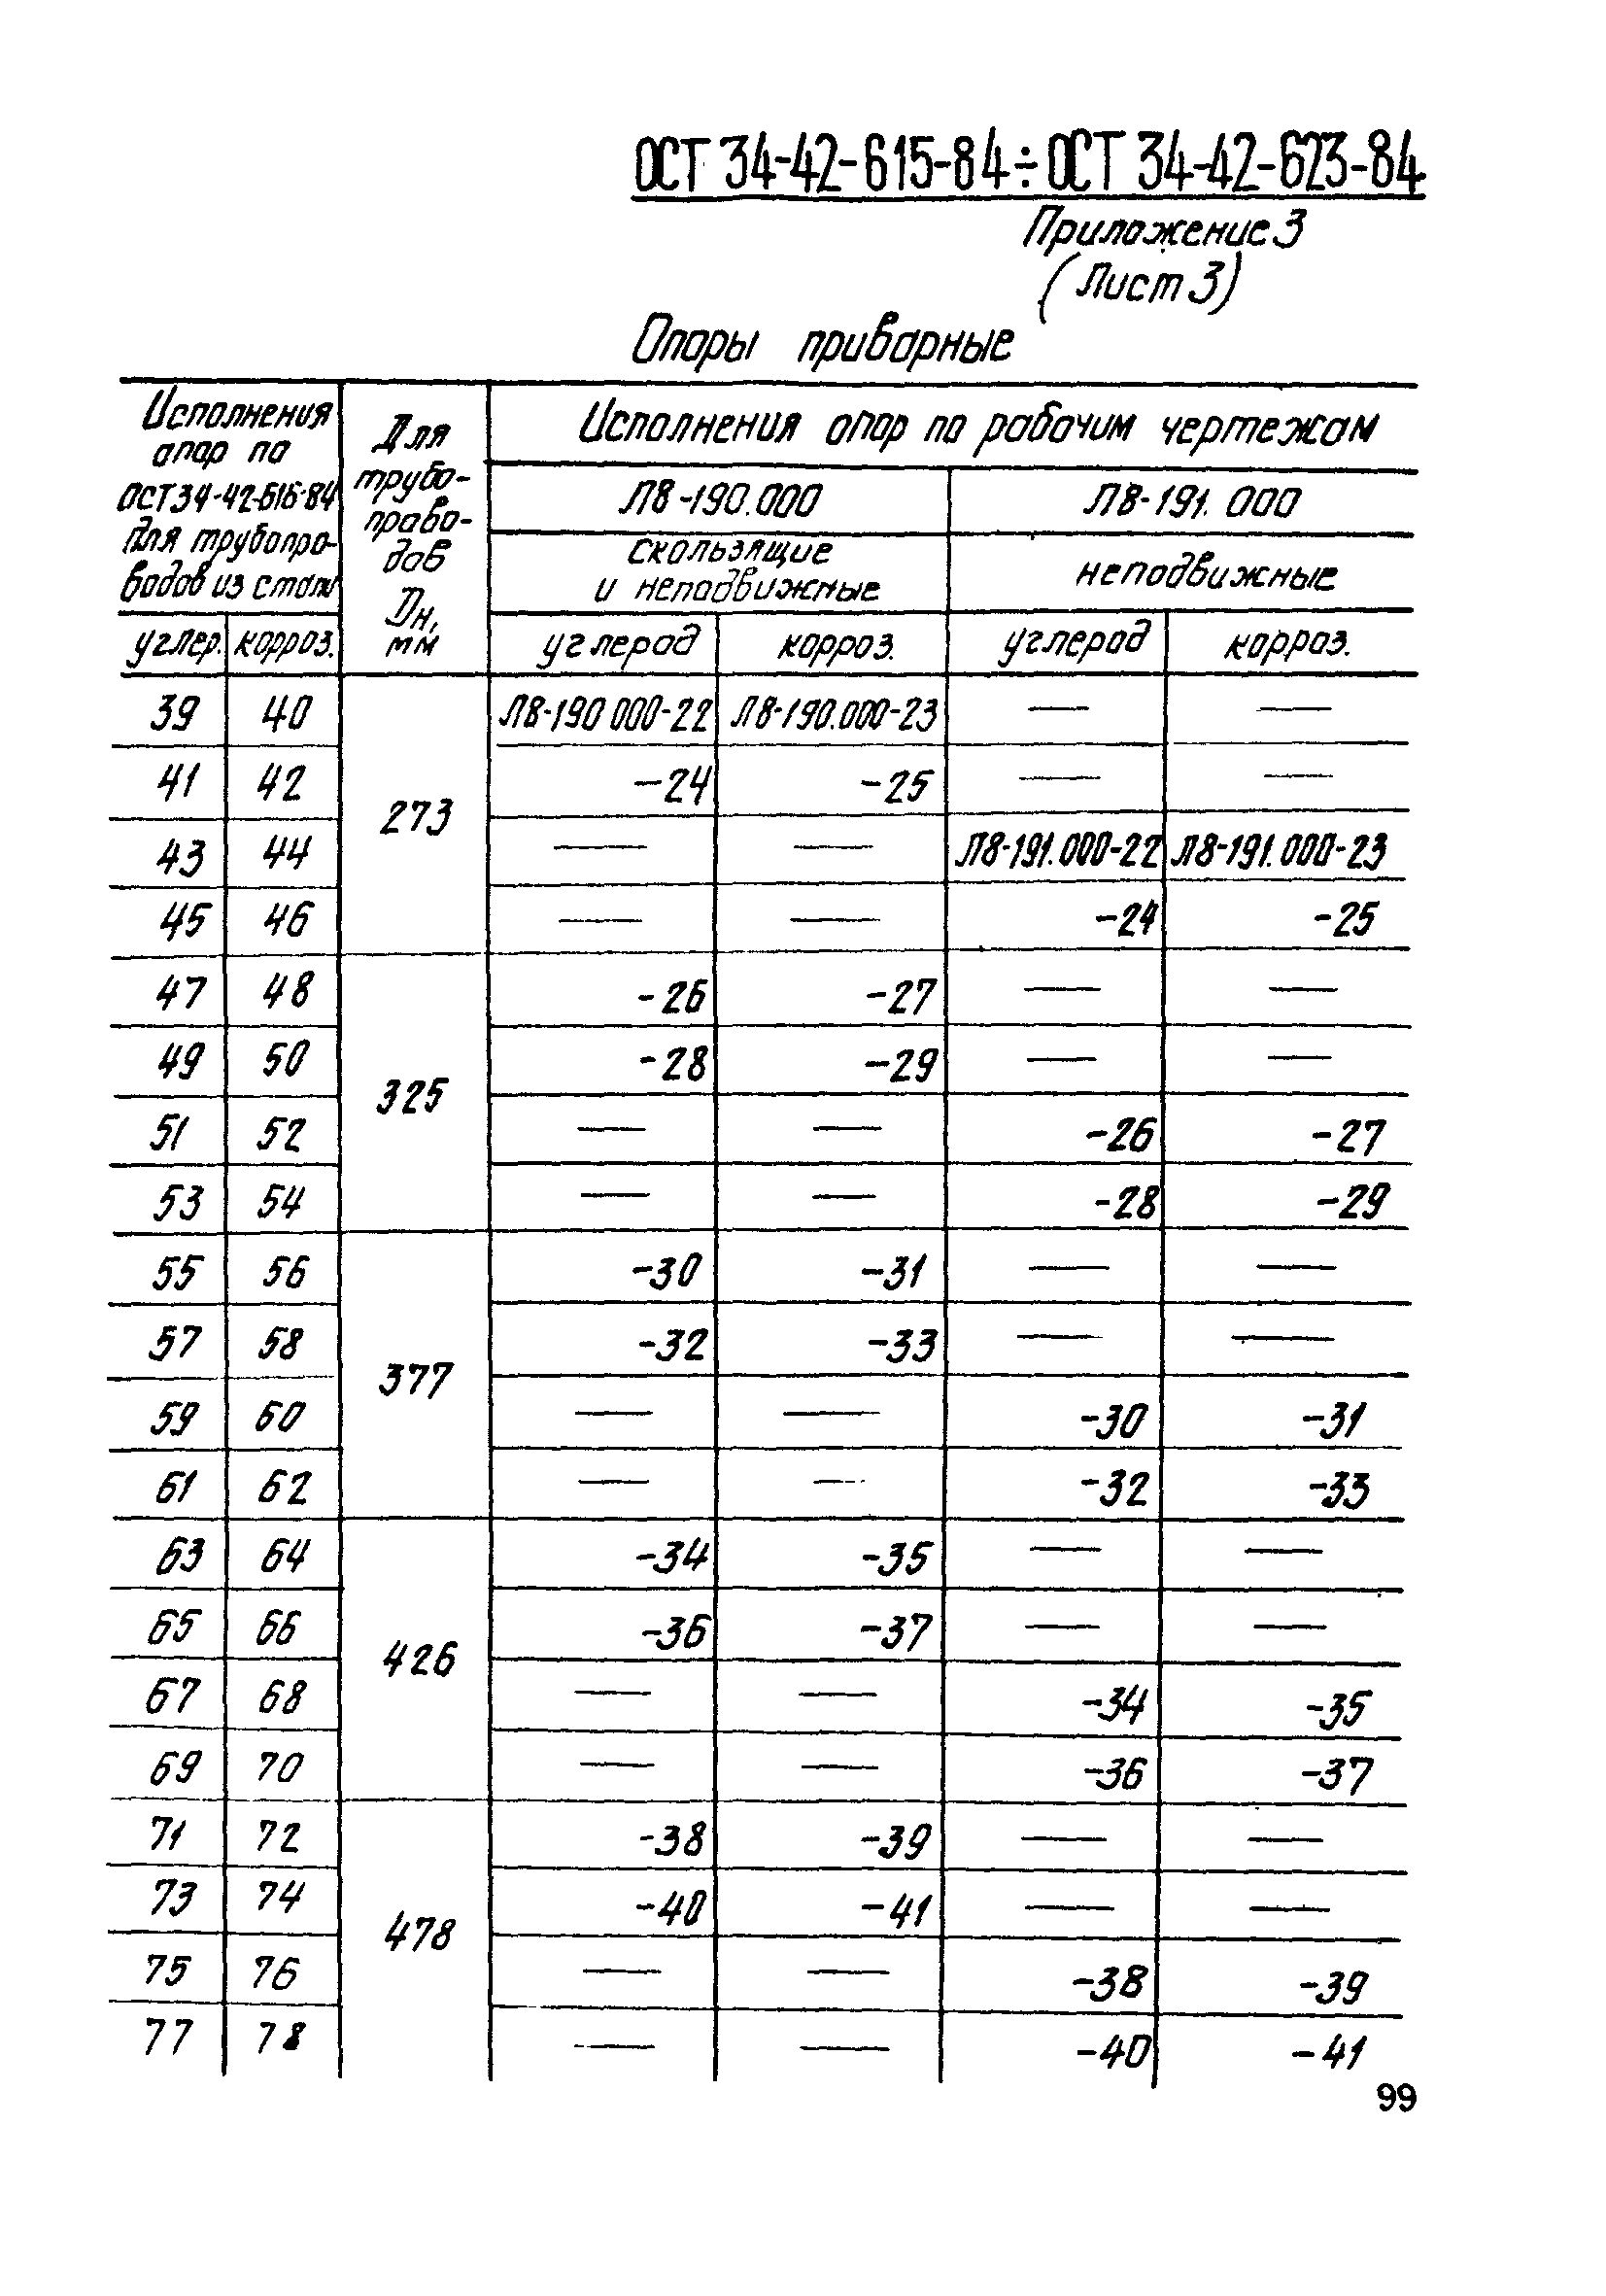 ОСТ 34-42-615-84÷ОСТ 34-42-623-84
Приложение 3
(Лист 3)
Опоры приварные
Исполнения опор по ОСТ 34-42-616-84 для трубопроводов из стали
Для трубопроводов Dн, мм
Исполнения опор по рабочим чертежам
Л8-190.000
Л8-191.000
скользящие и неподвижные
неподвижные
углер. корроз. углерод корроз. углерод корроз.
39 40 273 Л8-190 000-22 Л8-190.000-23 — —
41 42 -24 -25 — —
43 44 — — Л8-191.000-22 Л8-191.000-23
45 46 — — -24 -25
47 48 325 -26 -27 — —
49 50 -28 -29 — —
51 52 — — -26 -27
53 54 — — -28 -29
55 56 377 -30 -31 — —
57 58 -32 -33 — —
59 60 — — -30 -31
61 62 — — -32 -33
63 64 426 -34 -35 — —
65 66 -36 -37 — —
67 68 — — -34 -35
69 70 — — -36 -37
71 72 478 -38 -39 — —
73 74 -40 -41 — —
75 76 — — -38 -39
77 78 — — -40 -41
99